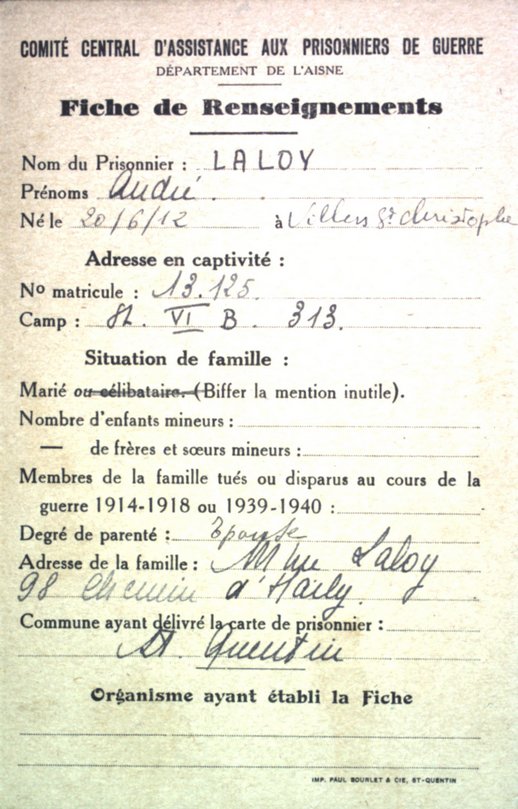 COMITÉ CENTRAL D'ASSISTANCE AUX PRISONNIERS DE GUERRE
DÉPARTEMENT DE L'AISNE
Fiche de Renseignements
Nom du Prisonnier : LALOY
Prénoms André
Né le 20/6/12 à Villers St Christophe
Adresse en captivité :
No matricule : 13.125.
Camp : St. VI B. 313.
Situation de famille :
Marié ou célibataire. (Biffer la mention inutile).
Nombre d'enfants mineurs :
— de frères et sœurs mineurs :
Membres de la famille tués ou disparus au cours de la
guerre 1914-1918 ou 1939-1940 :
Degré de parenté : Epouse
Adresse de la famille : Mme Laloy
98 Chemin d'Harly.
Commune ayant délivré la carte de prisonnier :
St. Quentin
Organisme ayant établi la Fiche
IMP. PAUL BOURLET & CIE, ST-QUENTIN